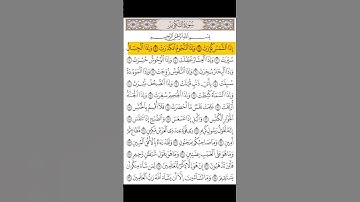 سُورَةُ التَّكْوِيرِ
بِسْمِ اللَّهِ الرَّحْمَٰنِ الرَّحِيمِ
إِذَا الشَّمْسُ كُوِّرَتْ ١ وَإِذَا النُّجُومُ انكَدَرَتْ ٢ وَإِذَا الْجِبَالُ
سُيِّرَتْ ٣ وَإِذَا الْعِشَارُ عُطِّلَتْ ٤ وَإِذَا الْوُحُوشُ حُشِرَتْ ٥
وَإِذَا الْبِحَارُ سُجِّرَتْ ٦ وَإِذَا النُّفُوسُ زُوِّجَتْ ٧ وَإِذَا الْمَوْءُودَةُ
سُئِلَتْ ٨ بِأَيِّ ذَنبٍ قُتِلَتْ ٩ وَإِذَا الصُّحُفُ نُشِرَتْ ١٠
وَإِذَا السَّمَاءُ كُشِطَتْ ١١ وَإِذَا الْجَحِيمُ سُعِّرَتْ ١٢ وَإِذَا الْجَنَّةُ
أُزْلِفَتْ ١٣ عَلِمَتْ نَفْسٌ مَّا أَحْضَرَتْ ١٤ فَلَا أُقْسِمُ بِالْخُنَّسِ ١٥
الْجَوَارِ الْكُنَّسِ ١٦ وَاللَّيْلِ إِذَا عَسْعَسَ ١٧ وَالصُّبْحِ إِذَا تَنَفَّسَ ١٨
إِنَّهُ لَقَوْلُ رَسُولٍ كَرِيمٍ ١٩ ذِي قُوَّةٍ عِندَ ذِي الْعَرْشِ مَكِينٍ ٢٠
مُّطَاعٍ ثَمَّ أَمِينٍ ٢١ وَمَا صَاحِبُكُم بِمَجْنُونٍ ٢٢ وَلَقَدْ رَآهُ بِالْأُفُقِ الْمُبِينِ ٢٣
وَمَا هُوَ عَلَى الْغَيْبِ بِضَنِينٍ ٢٤ وَمَا هُوَ بِقَوْلِ شَيْطَانٍ رَّجِيمٍ ٢٥
فَأَيْنَ تَذْهَبُونَ ٢٦ إِنْ هُوَ إِلَّا ذِكْرٌ لِّلْعَالَمِينَ ٢٧ لِمَن شَاءَ مِنكُمْ أَن
يَسْتَقِيمَ ٢٨ وَمَا تَشَاءُونَ إِلَّا أَن يَشَاءَ اللَّهُ رَبُّ الْعَالَمِينَ ٢٩